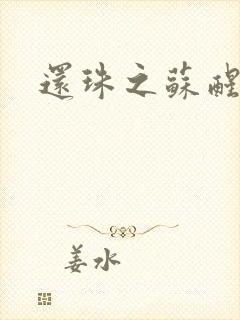 還珠之蘇醒
姜水